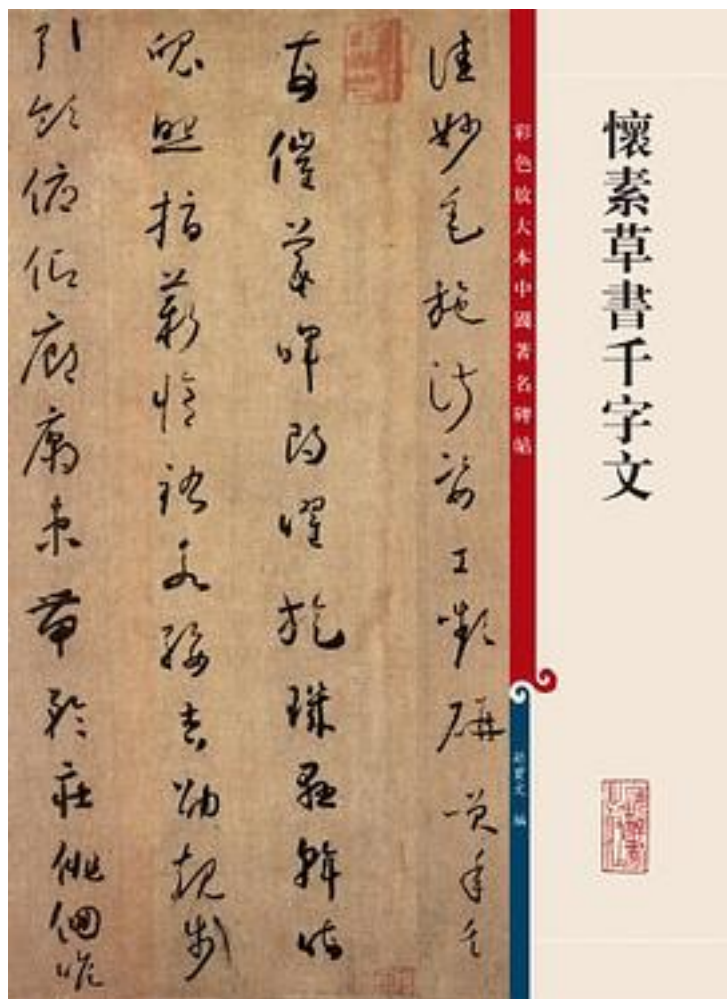 懷素草書千字文
彩色放大本中國著名碑帖
孫寶文 編
佳妙毛施淑姿工顰研笑年矢
每催羲暉朗曜旋璣懸斡晦
魄照指薪脩祜永綏吉劭矩步
引領俯仰廊廟束帶矜莊徘徊瞻